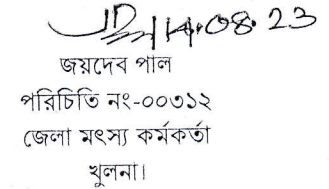 14.08.23
জয়দেব পাল
পরিচিতি নং-০০৩১২
জেলা মৎস্য কর্মকর্তা
খুলনা।